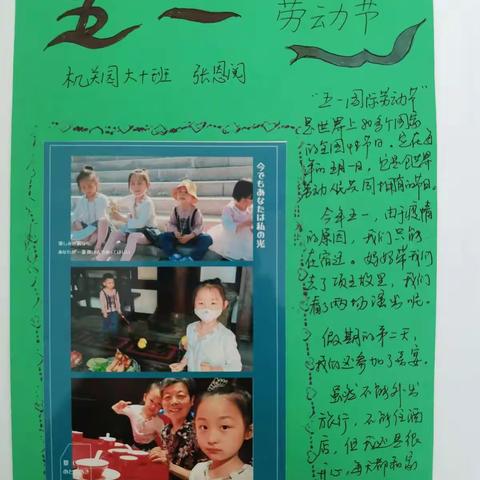 五一
劳动节
机关园大十班 张恩闵
"五一国际劳动节"
是世界上80多个国家
的全国性节日。定在每
年的五月一日,它是全世界
劳动人民共同拥有的节日。
今年五一,由于疫情
的原因,我们只能
在宿迁。妈妈带我们
去了项王故里,我们
看了两场演出呢。
假期的第二天,
我们还参加了喜宴。
虽然不能外出
旅行,不能住酒
店,但我还是很
开心,每天都和家
今でもあなたは私の光